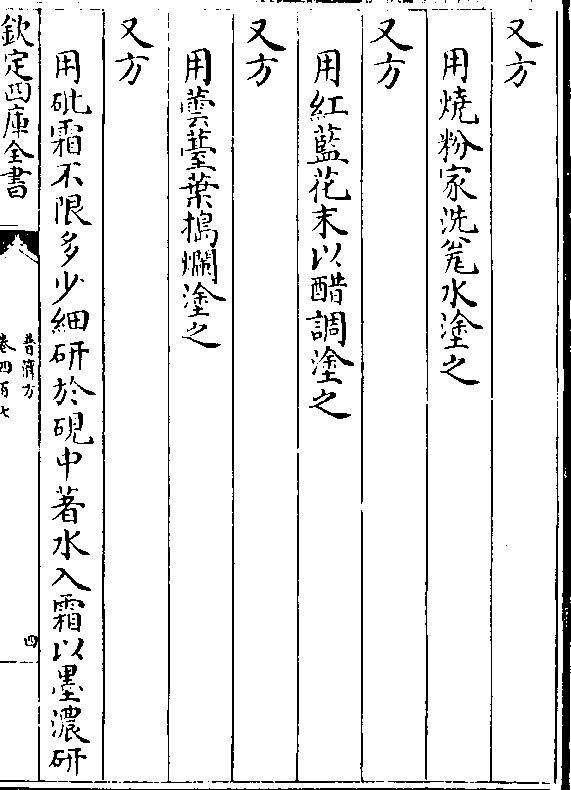 又方
用燒粉家洗瓮水塗之
又方
用紅藍花末以醋調塗之
又方
用蕓薹葉搗爛塗之
又方
用砒霜不限多少細研於硯中著水入霜以墨濃研
欽定四庫全書
普濟方
卷四百七
四